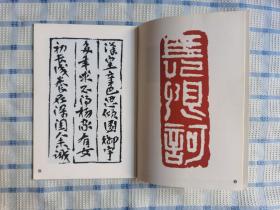 漢皇重色思傾國御宇
多年求不得楊家有女
初長成養在深閨人未識
長恨訶